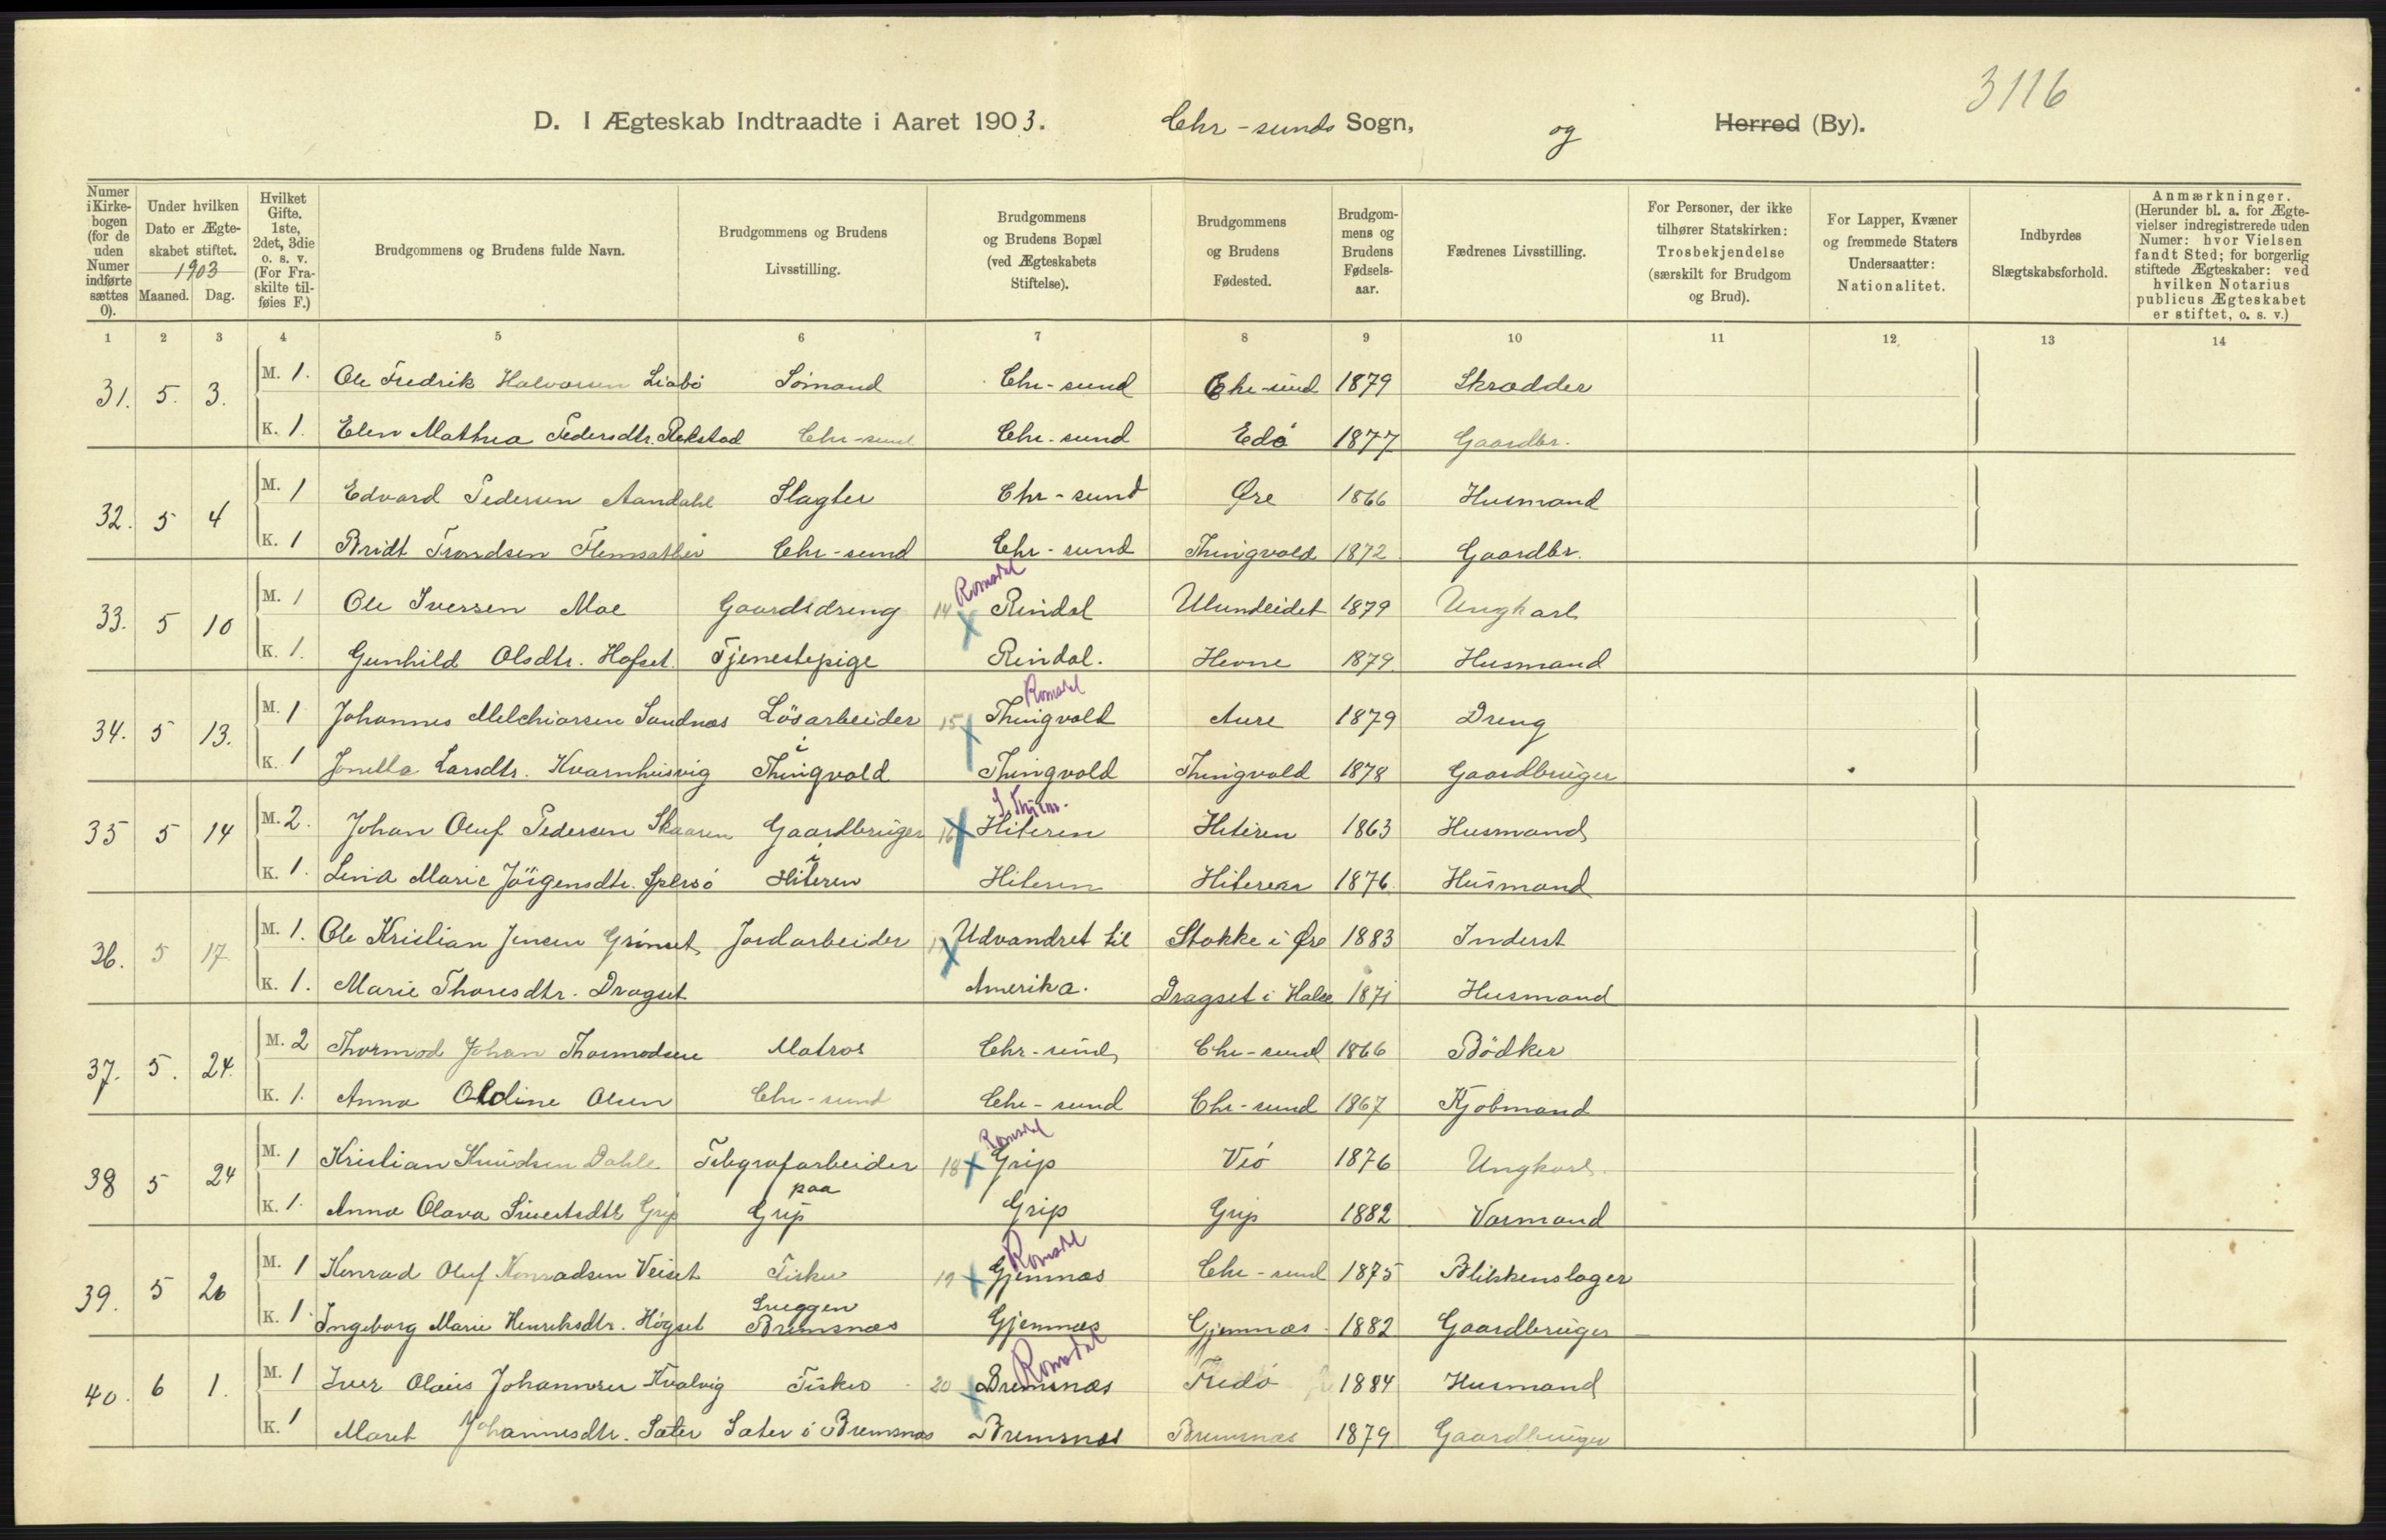 3116
D. I Ægteskab Indtraadte i Aaret 1903. Chr-sunds Sogn, og Herred (By).
Numer i Kirkebogen (for de uden Numer indførte sættes 0). Under hvilken Dato er Ægteskabet stiftet. 1903 Maaned. Dag. Hvilket Gifte. 1ste, 2det, 3die o. s. v. (For Fraskilte tilføies F.) Brudgommens og Brudens fulde Navn. Brudgommens og Brudens Livsstilling. Brudgommens og Brudens Bopæl (ved Ægteskabets Stiftelse). Brudgommens og Brudens Fødested. Brudgommens og Brudens Fødselsaar. Fædrenes Livsstilling. For Personer, der ikke tilhører Statskirken: Trosbekjendelse (særskilt for Brudgom og Brud). For Lapper, Kvæner og fremmede Staters Undersaatter: Nationalitet. Indbyrdes Slægtskabsforhold. Anmærkninger. (Herunder bl. a. for Ægtevielser indregistrerede uden Numer: hvor Vielsen fandt Sted; for borgerlig stiftede Ægteskaber: ved hvilken Notarius publicus Ægteskabet er stiftet, o. s. v.)
1 2 3 4 5 6 7 8 9 10 11 12 13 14
31. 5. 3. M. 1. Ole Fredrik Halvorsen Liabö Sömand Chr-sund Chr-sund 1879 Skrædder
K. 1. Elen Mathea Pedersdtr. Rekstad Chr-sund Chr-sund Edö 1877 Gaardbr.
32. 5 4 M. 1 Edvard Pedersen Aandahl Slagter Chr-sund Øre 1866 Husmand
K. 1 Bridt Trondsen Flemsæter Chr-sund Chr-sund Thingvold 1872 Gaardbr.
Romsdal
33. 5 10 M. 1 Ole Iversen Moe Gaardsdreng 14 Rindal Ulundeidet 1879 Ungkarl
K. 1. Gunhild Olsdtr. Hofset Tjenestepige Rindal. Hevne 1879. Husmand
Romsdal
34. 5 13. M. 1 Johannes Melchiorsen Sandnæs Lösarbeider 15 Thingvold Aure 1879 Dreng
K. 1 Jonella Larsdtr. Kvarnhusvig i Thingvold Thingvold Thingvold 1878 Gaardbruger
S. Thjem.
35 5 14 M. 2. Johan Oluf Pedersen Skaaren Gaardbruger 16 Hiteren Hiteren 1863 Husmand
K. 1. Lina Marie Jörgensdtr. i Hiteren Hiteren Hiteren 1876. Husmand
36. 5 17 M. 1. Ole Kristian Jensen Grimset Jordarbeider 17 Udvandret til Stokke i Øre 1883 Inderst
K. 1. Marie Thoresdtr. Dragset Amerika. Dragset i Halse 1871 Husmand
37. 5. 24. M. 2 Thormod Johan Thormodsen Matros Chr-sund Chr-sund 1866 Bödker
K. 1. Anna Oldine Olsen Chr-sund Chr-sund Chr-sund 1867 Kjöbmand
Romsdal
38 5 24 M. 1 Kristian Knudsen Dahle Telegrafarbeider 18 Grip Veö 1876 Ungkarl.
K. 1. Anna Olava Sivertsdtr Grip paa Grip Grip Grip 1882 Varmand
Romsdal
39. 5 26 M. 1 Konrad Oluf Konradsen Veiset Fisker 19 Gjemnæs Chr-sund 1875 Blikkenslager
K. 1. Ingeborg Marie Henriksdtr. Högset Sveggen Bremsnæs Gjemnæs Gjemnæs 1882 Gaardbruger
Romsdal
40. 6 1. M. 1 Iver Olaus Johannesen Kvalvig Fisker 20 Bremsnæs Fredö 1884 Husmand
K. 1 Maret Johannesdtr. Sæter Sæter i Bremsnæs Bremsnæs Bremsnæs 1879 Gaardbruger